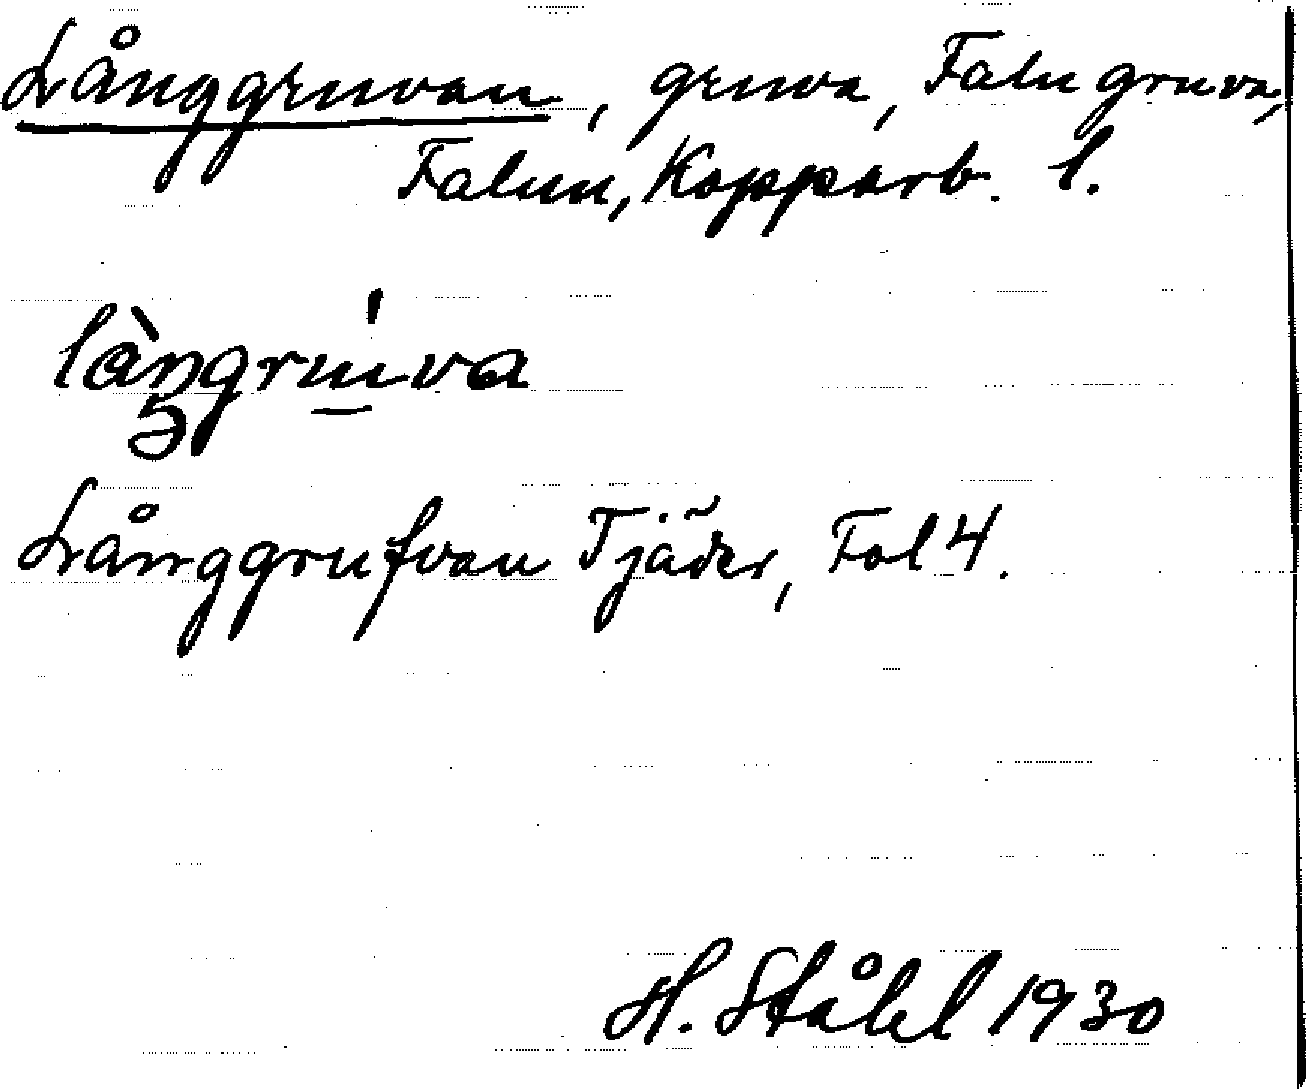 Långgruvan, gruva, Falu gruva,
Falun, Kopparb. l.
làŋgrúva
Långgrufvan Tjäder, Fol 4.
H. Ståhl 1930